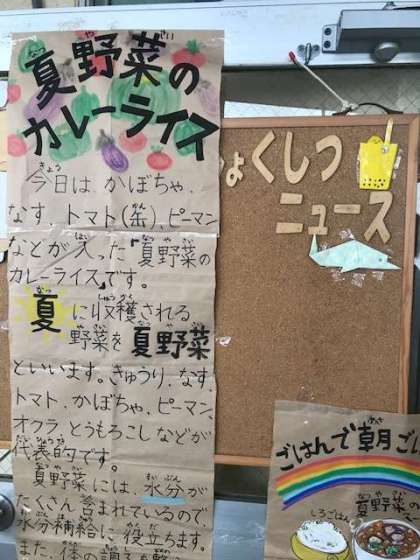 夏野菜の
カレーライス
今日は、かぼちゃ、
なす、トマト(缶)、ピーマン
などが入った「夏野菜の
カレーライス」です。
夏に収穫される
野菜を夏野菜
といいます。きゅうり、なす、
トマト、かぼちゃ、ピーマン、
オクラ、とうもろこしなどが
代表的です。
夏野菜には、水分が
たくさん含まれているので、
水分補給に役立ちます。
また、体の
ょくしつ
ニュース
ごはんで朝ごは
夏野菜の
しろごはん